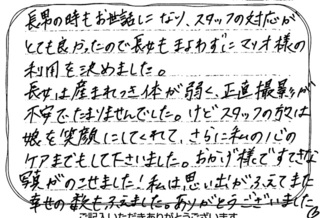 長男の時もお世話になり、スタッフの対応が
とても良かったので長女もまよわずにマリオ様の
利用を決めました。
長女は産まれつき体が弱く、正直撮影が
不安でたまりませんでした。けどスタッフの方は
娘を笑顔にしてくれて、さらに私の心の
ケアまでもして下さいました。おかげ様ですてきな
写真がのこせました!私は思い出がふえてまた
幸せの数もふえました。ありがとうございました。
ご記入いただきありがとうございます